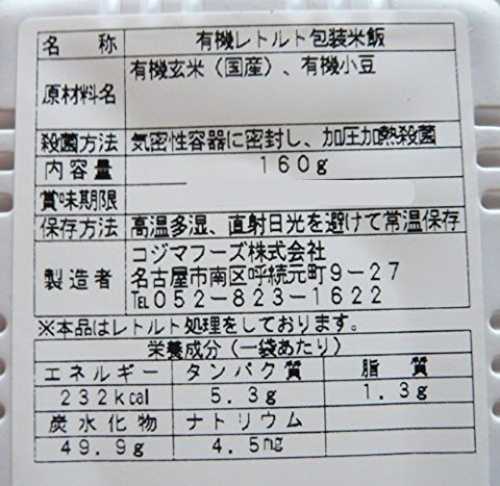 名称 有機レトルト包装米飯
原材料名 有機玄米（国産）、有機小豆
殺菌方法 気密性容器に密封し、加圧加熱殺菌
内容量 160g
賞味期限
保存方法 高温多湿、直射日光を避けて常温保存
製造者 コジマフーズ株式会社
名古屋市南区呼続元町9-27
℡052-823-1622
※本品はレトルト処理をしております。
栄養成分（一袋あたり）
エネルギー タンパク質 脂質
232kcal 5.3g 1.3g
炭水化物 ナトリウム
49.9g 4.5mg